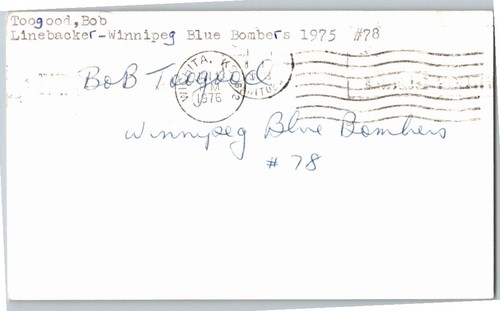 Toogood,Bob
Linebacker-Winnipeg Blue Bombers 1975 #78
BoB Toogood
WICHITA, KS
PM
1976
Winnipeg Blue Bombers
# 78